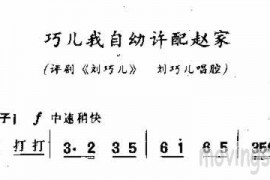 巧儿我自幼许配赵家
（评剧《刘巧儿》 刘巧儿唱腔）
子i f 中速稍快
打打 | 3·2 35 | 6i 65 | 35
movings